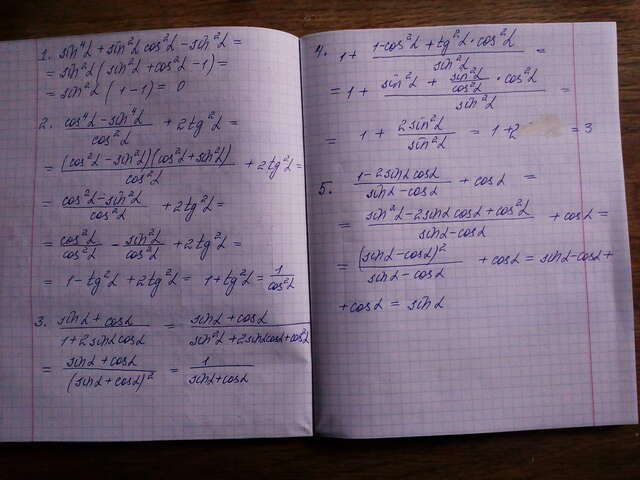 1. sin⁴α + sin²α cos²α - sin²α =
= sin²α (sin²α + cos²α - 1) =
= sin²α (1 - 1) = 0
2. (cos⁴α - sin⁴α)/cos²α + 2tg²α =
= ((cos²α - sin²α)(cos²α + sin²α))/cos²α + 2tg²α =
= (cos²α - sin²α)/cos²α + 2tg²α =
= cos²α/cos²α - sin²α/cos²α + 2tg²α =
= 1 - tg²α + 2tg²α = 1 + tg²α = 1/cos²α
3. (sinα + cosα)/(1 + 2sinα cosα) = (sinα + cosα)/(sin²α + 2sinα cosα + cos²α)
= (sinα + cosα)/(sinα + cosα)² = 1/(sinα + cosα)
4. 1 + (1 - cos²α + tg²α · cos²α)/sin²α =
= 1 + (sin²α + sin²α/cos²α · cos²α)/sin²α =
= 1 + 2sin²α/sin²α = 1 + 2 = 3
5. (1 - 2sinα cosα)/(sinα - cosα) + cosα =
= (sin²α - 2sinα cosα + cos²α)/(sinα - cosα) + cosα =
= (sinα - cosα)²/(sinα - cosα) + cosα = sinα - cosα +
+ cosα = sinα